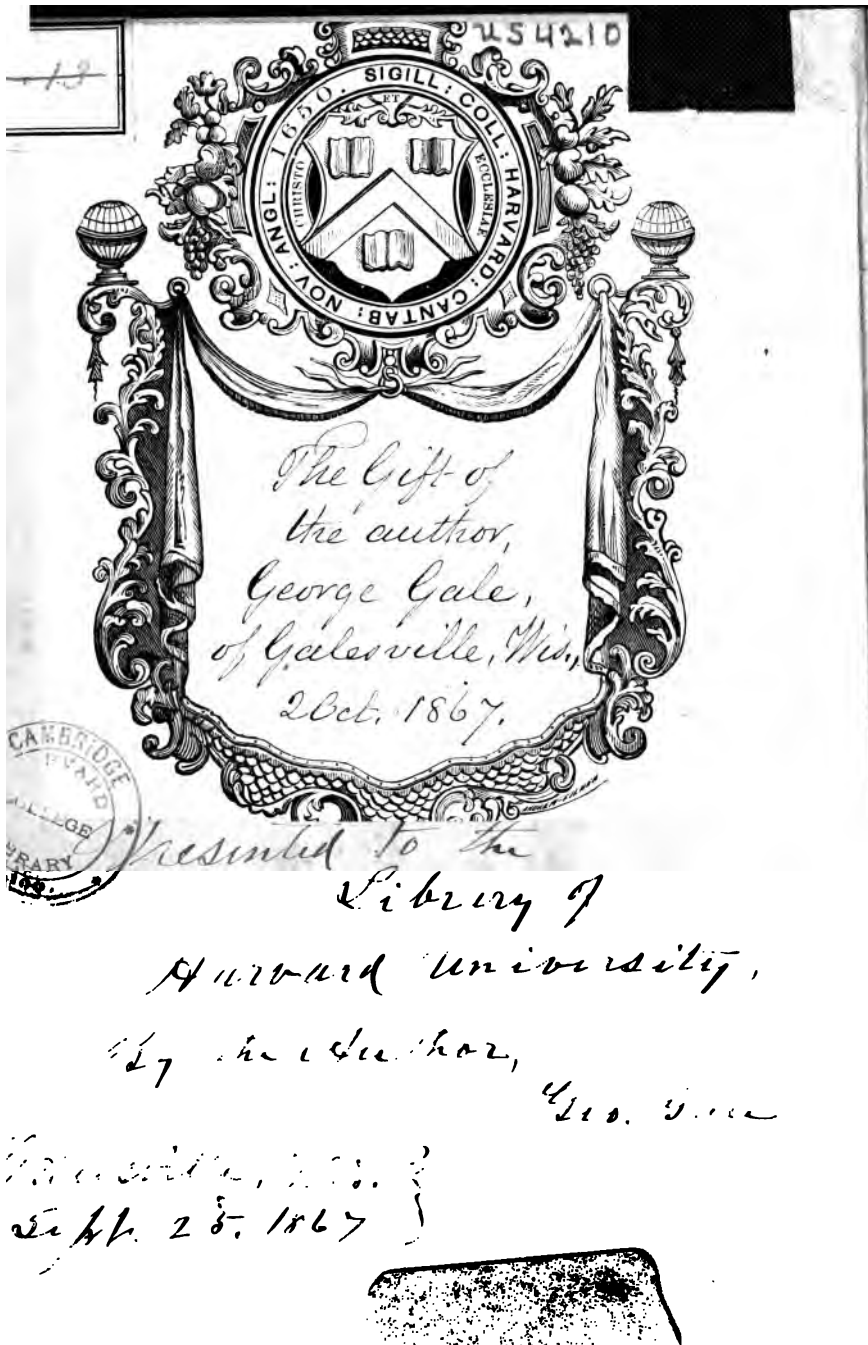 US4210
13
SIGILL: COLL: HARVARD: CANTAB: NOV: ANGL: 1650.
CHRISTO ET ECCLESIAE
The Gift of
the author,
George Gale,
of Galesville, Wis.,
2 Oct. 1867.
CAMBRIDGE
COLLEGE
Presented to the
Library of
Harvard University,
By the Author,
Geo. Gale
Sept. 25. 1867